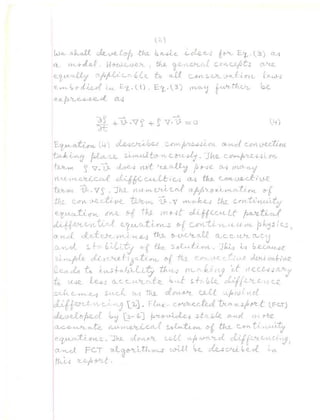 (2)
We shall develop the basic ideas for Eq. (3) as
a model. However, the general concepts are
equally applicable to all conservation laws
embodied in Eq. (1). Eq. (3) may further be
expressed as
∂ρ/∂t + v⃗·∇ρ + ρ ∇·v⃗ = 0 (4)
Equation (4) describes compression and convection
taking place simultaneously. The compression
term ρ ∇·v⃗ does not really pose as many
numerical difficulties as the convective
term v⃗·∇ρ. The numerical approximation of
the convective term v⃗·∇ makes the continuity
equation one of the most difficult partial
differential equations of continuum physics,
and determines the overall accuracy
and stability of the solution. This is because
simple discretization of the convective derivative
leads to instability thus making it necessary
to use less accurate but stable difference
schemes such as the donor cell upwind
differencing [2]. Flux-corrected transport (FCT)
developed by [3-6] provides stable and more
accurate numerical solution of the continuity
equations. The donor cell upward differencing,
and FCT algorithms will be described in
this report.